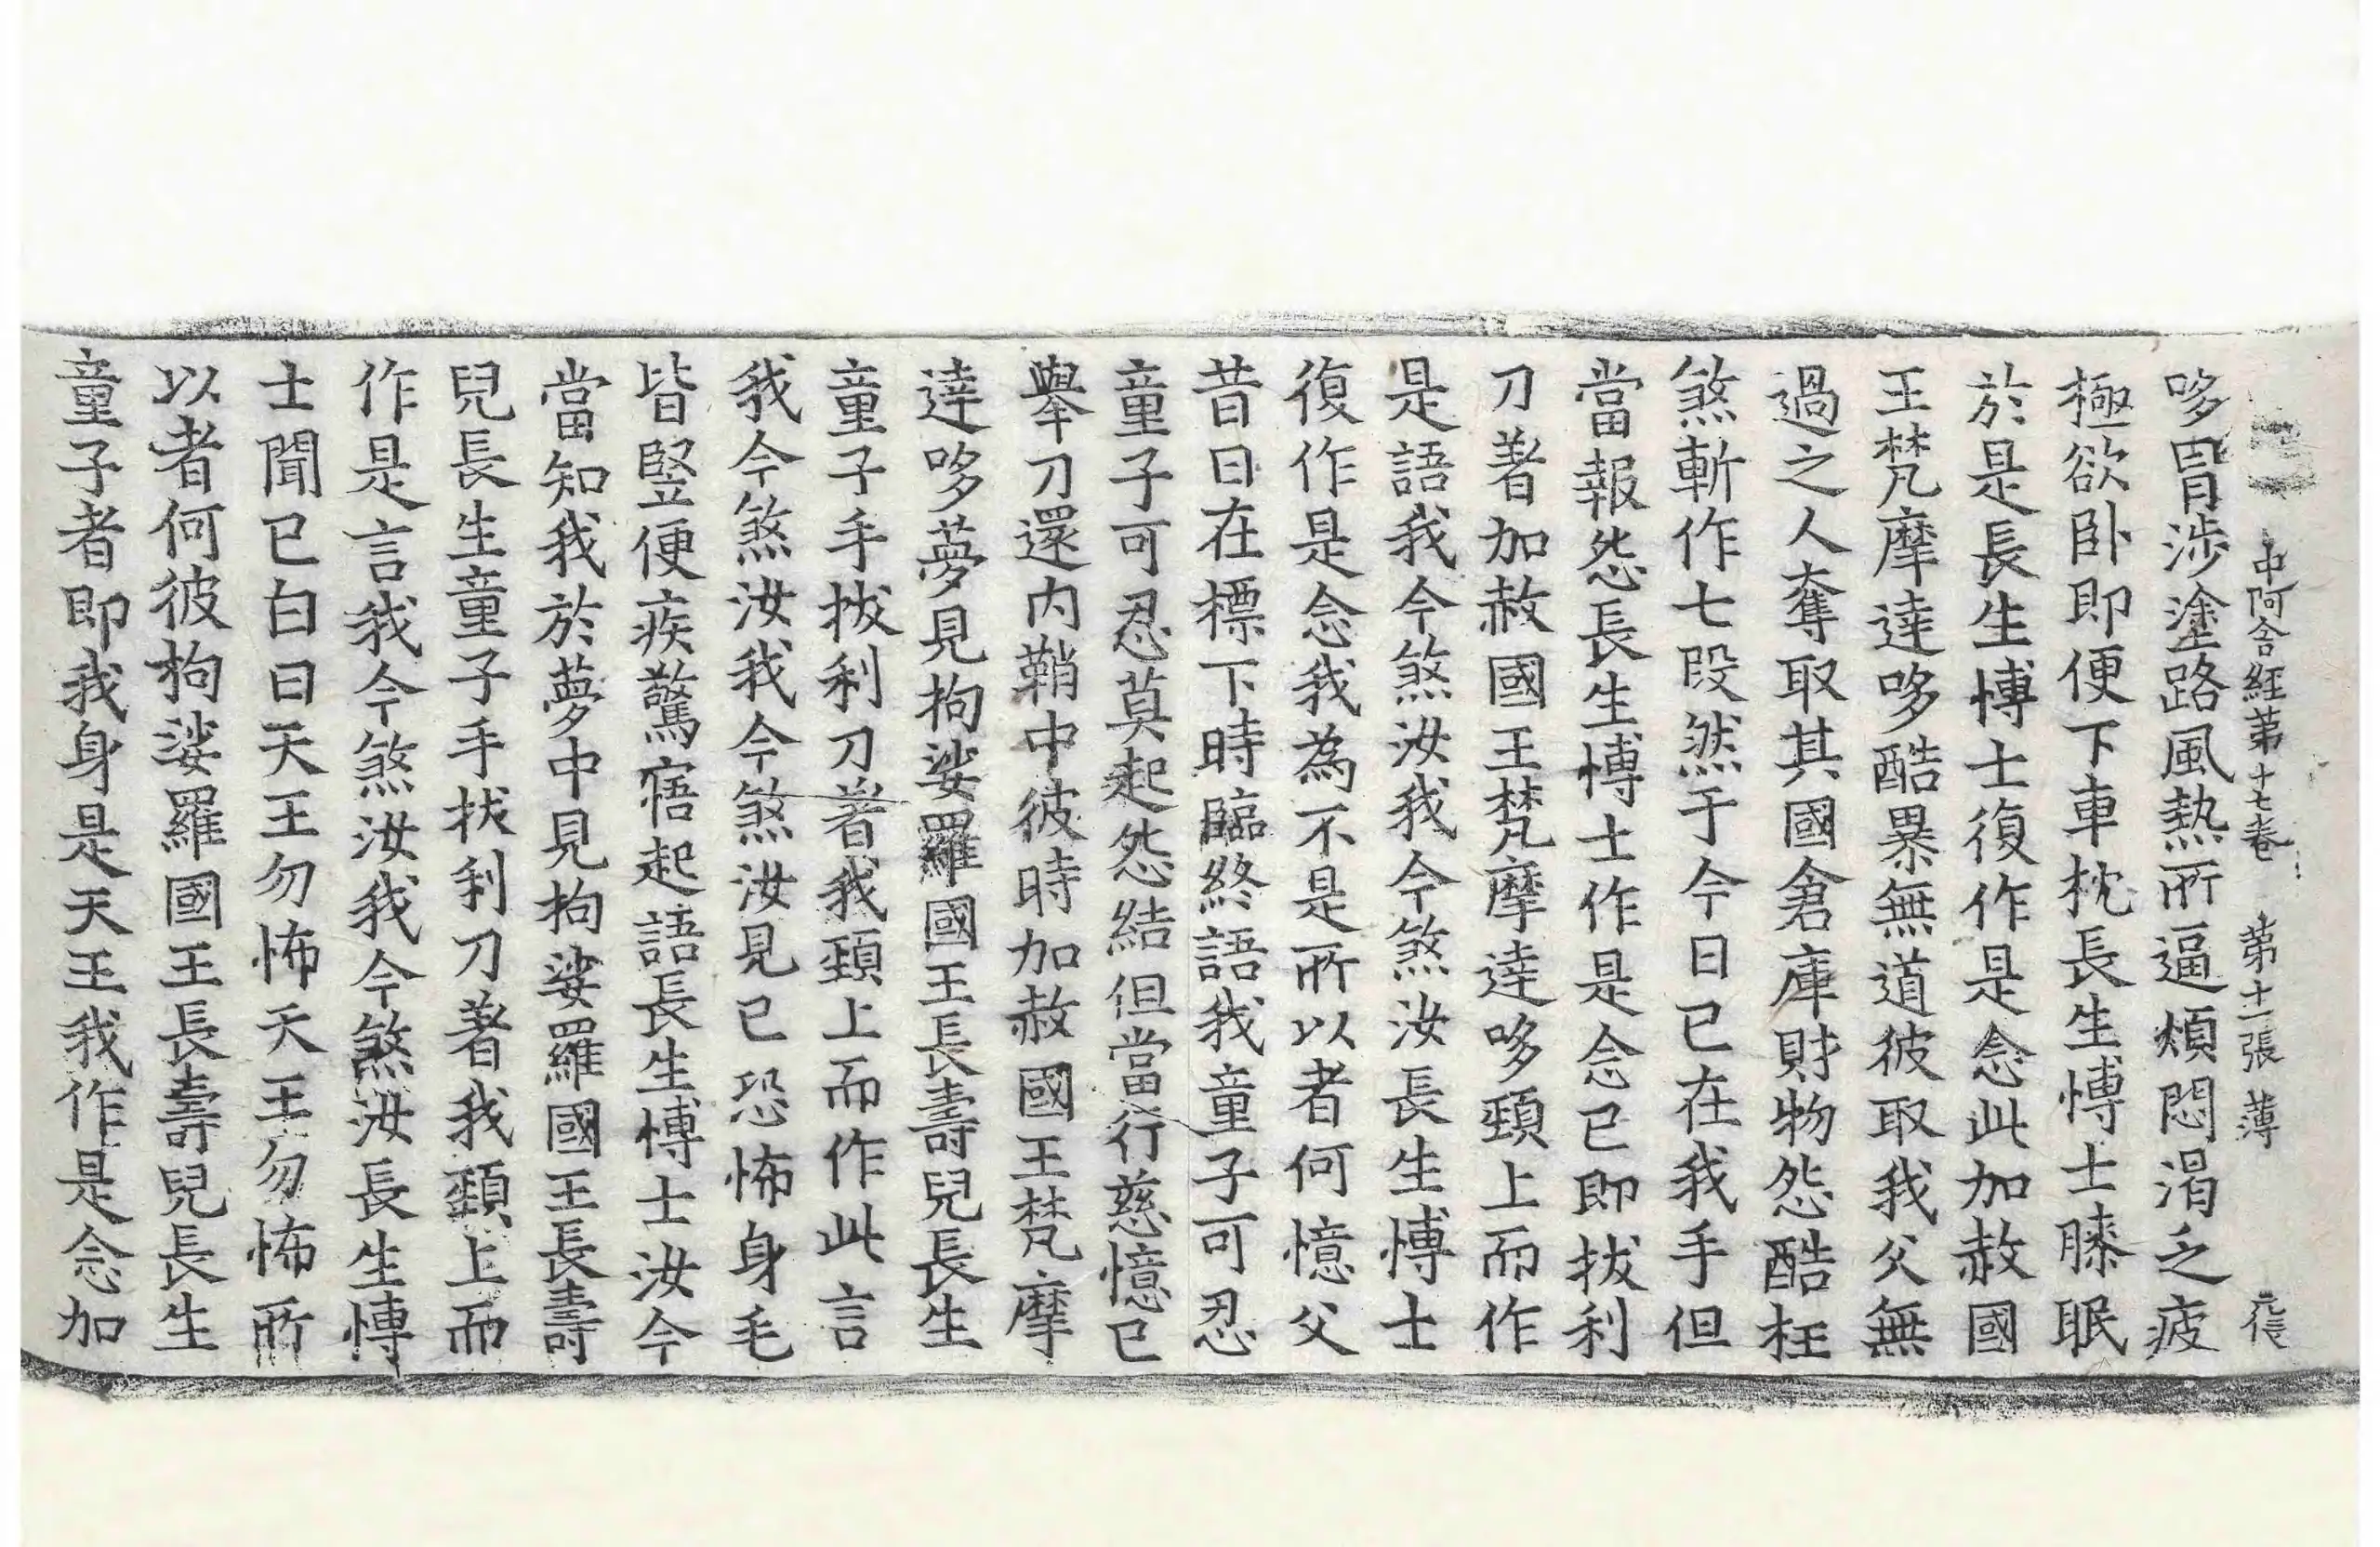 中阿含經第十七卷 第十一張 薄
哆冒涉塗路風熱所逼煩悶渴乏疲
極欲卧即便下車枕長生博士膝眠
於是長生博士復作是念此加赦國
王梵摩達哆酷暴無道彼取我父無
過之人奪取其國倉庫財物怨酷枉
煞斬作七段然于今日已在我手但
當報怨長生博士作是念已即拔利
刀著加赦國王梵摩達哆頸上而作
是語我今煞汝我今煞汝長生博士
復作是念我為不是所以者何憶父
昔日在標下時臨終語我童子可忍
童子可忍莫起怨結但當行慈憶已
舉刀還内鞘中彼時加赦國王梵摩
達哆夢見拘娑羅國王長壽兒長生
童子手拔利刀著我頸上而作此言
我今煞汝我今煞汝見已恐怖身毛
皆竪便疾驚寤起語長生博士汝今
當知我於夢中見拘娑羅國王長壽
兒長生童子手拔利刀著我頸上而
作是言我今煞汝我今煞汝長生博
士聞已白曰天王勿怖天王勿怖所
以者何彼拘娑羅國王長壽兒長生
童子者即我身是天王我作是念加